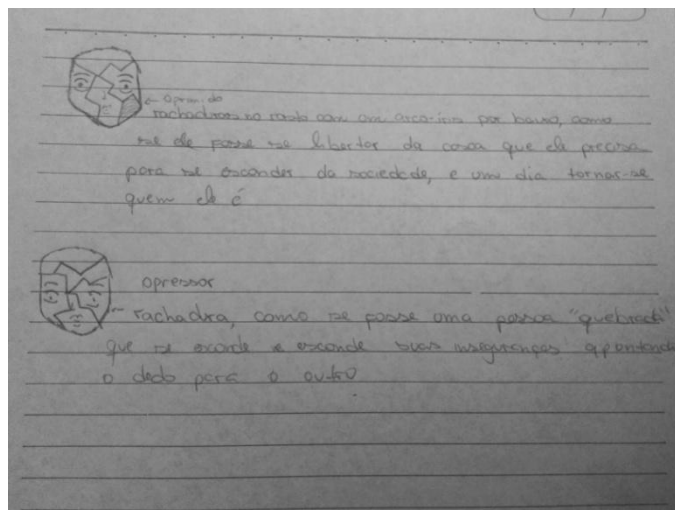 oprimido
rachaduras no rosto com um arco-íris por baixo, como
se ele fosse se libertar da casca que ele precisa
para se esconder da sociedade, e um dia tornar-se
quem ele é
opressor
rachadura, como se fosse uma pessoa "quebrada"
que se esconde e esconde suas inseguranças apontando
o dedo para o outro